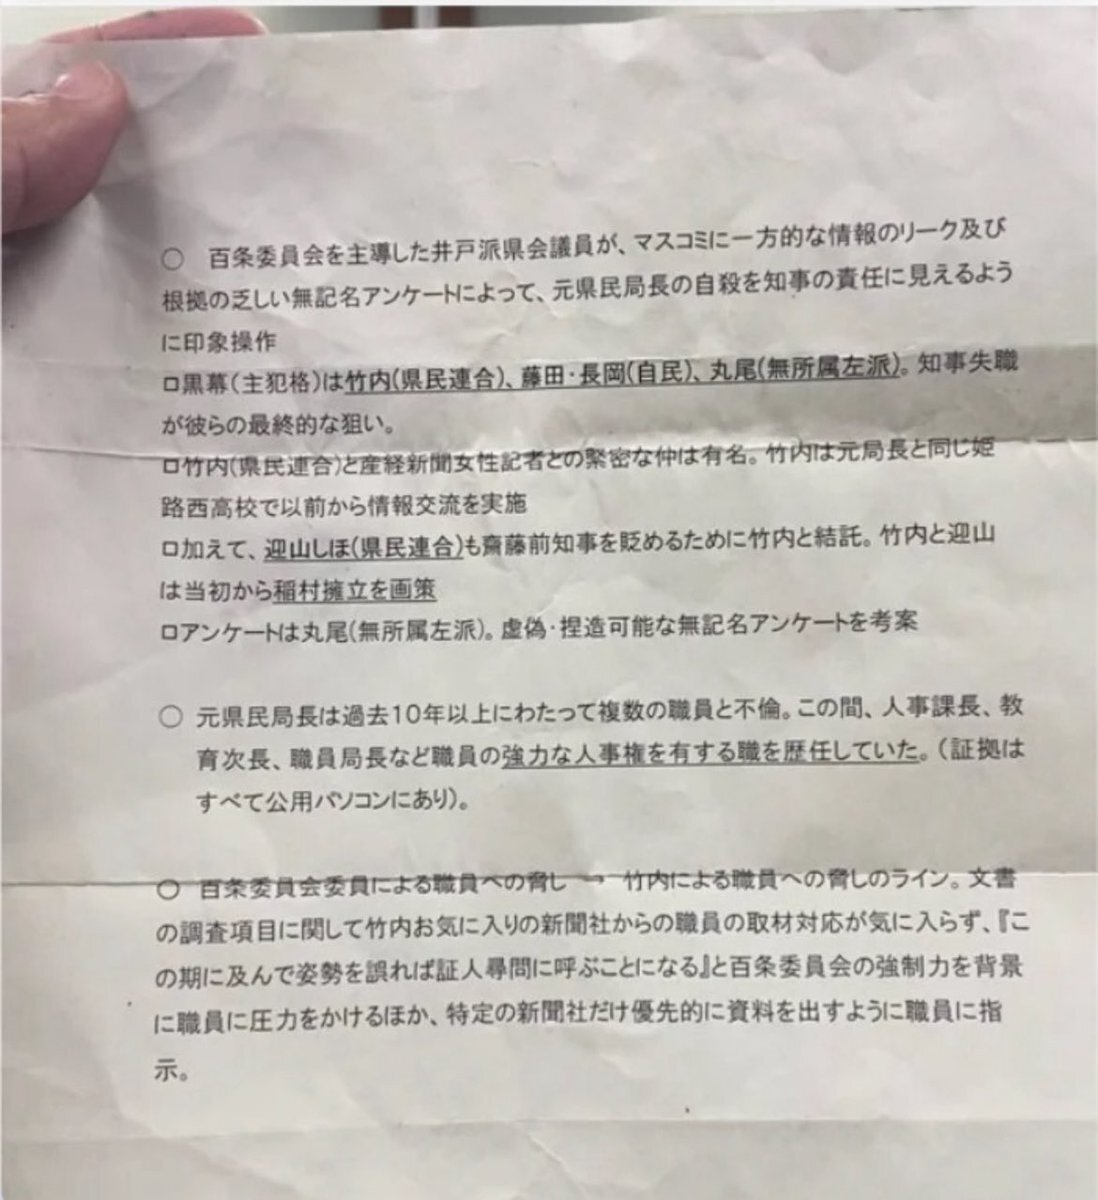 ○　百条委員会を主導した井戸派県会議員が、マスコミに一方的な情報のリーク及び
根拠の乏しい無記名アンケートによって、元県民局長の自殺を知事の責任に見えるよう
に印象操作
□黒幕(主犯格)は竹内(県民連合)、藤田・長岡(自民)、丸尾(無所属左派)。知事失職
が彼らの最終的な狙い。
□竹内(県民連合)と産経新聞女性記者との緊密な仲は有名。竹内は元局長と同じ姫
路西高校で以前から情報交流を実施
□加えて、迎山しほ(県民連合)も齋藤前知事を貶めるために竹内と結託。竹内と迎山
は当初から稲村擁立を画策
□アンケートは丸尾(無所属左派)。虚偽・捏造可能な無記名アンケートを考案
○ 元県民局長は過去10年以上にわたって複数の職員と不倫。この間、人事課長、教
育次長、職員局長など職員の強力な人事権を有する職を歴任していた。(証拠は
すべて公用パソコンにあり)。
○　百条委員会委員による職員への脅し　→　竹内による職員への脅しのライン。文書
の調査項目に関して竹内お気に入りの新聞社からの職員の取材対応が気に入らず、『こ
の期に及んで姿勢を誤れば証人尋問に呼ぶことになる』と百条委員会の強制力を背景
に職員に圧力をかけるほか、特定の新聞社だけ優先的に資料を出すように職員に指
示。